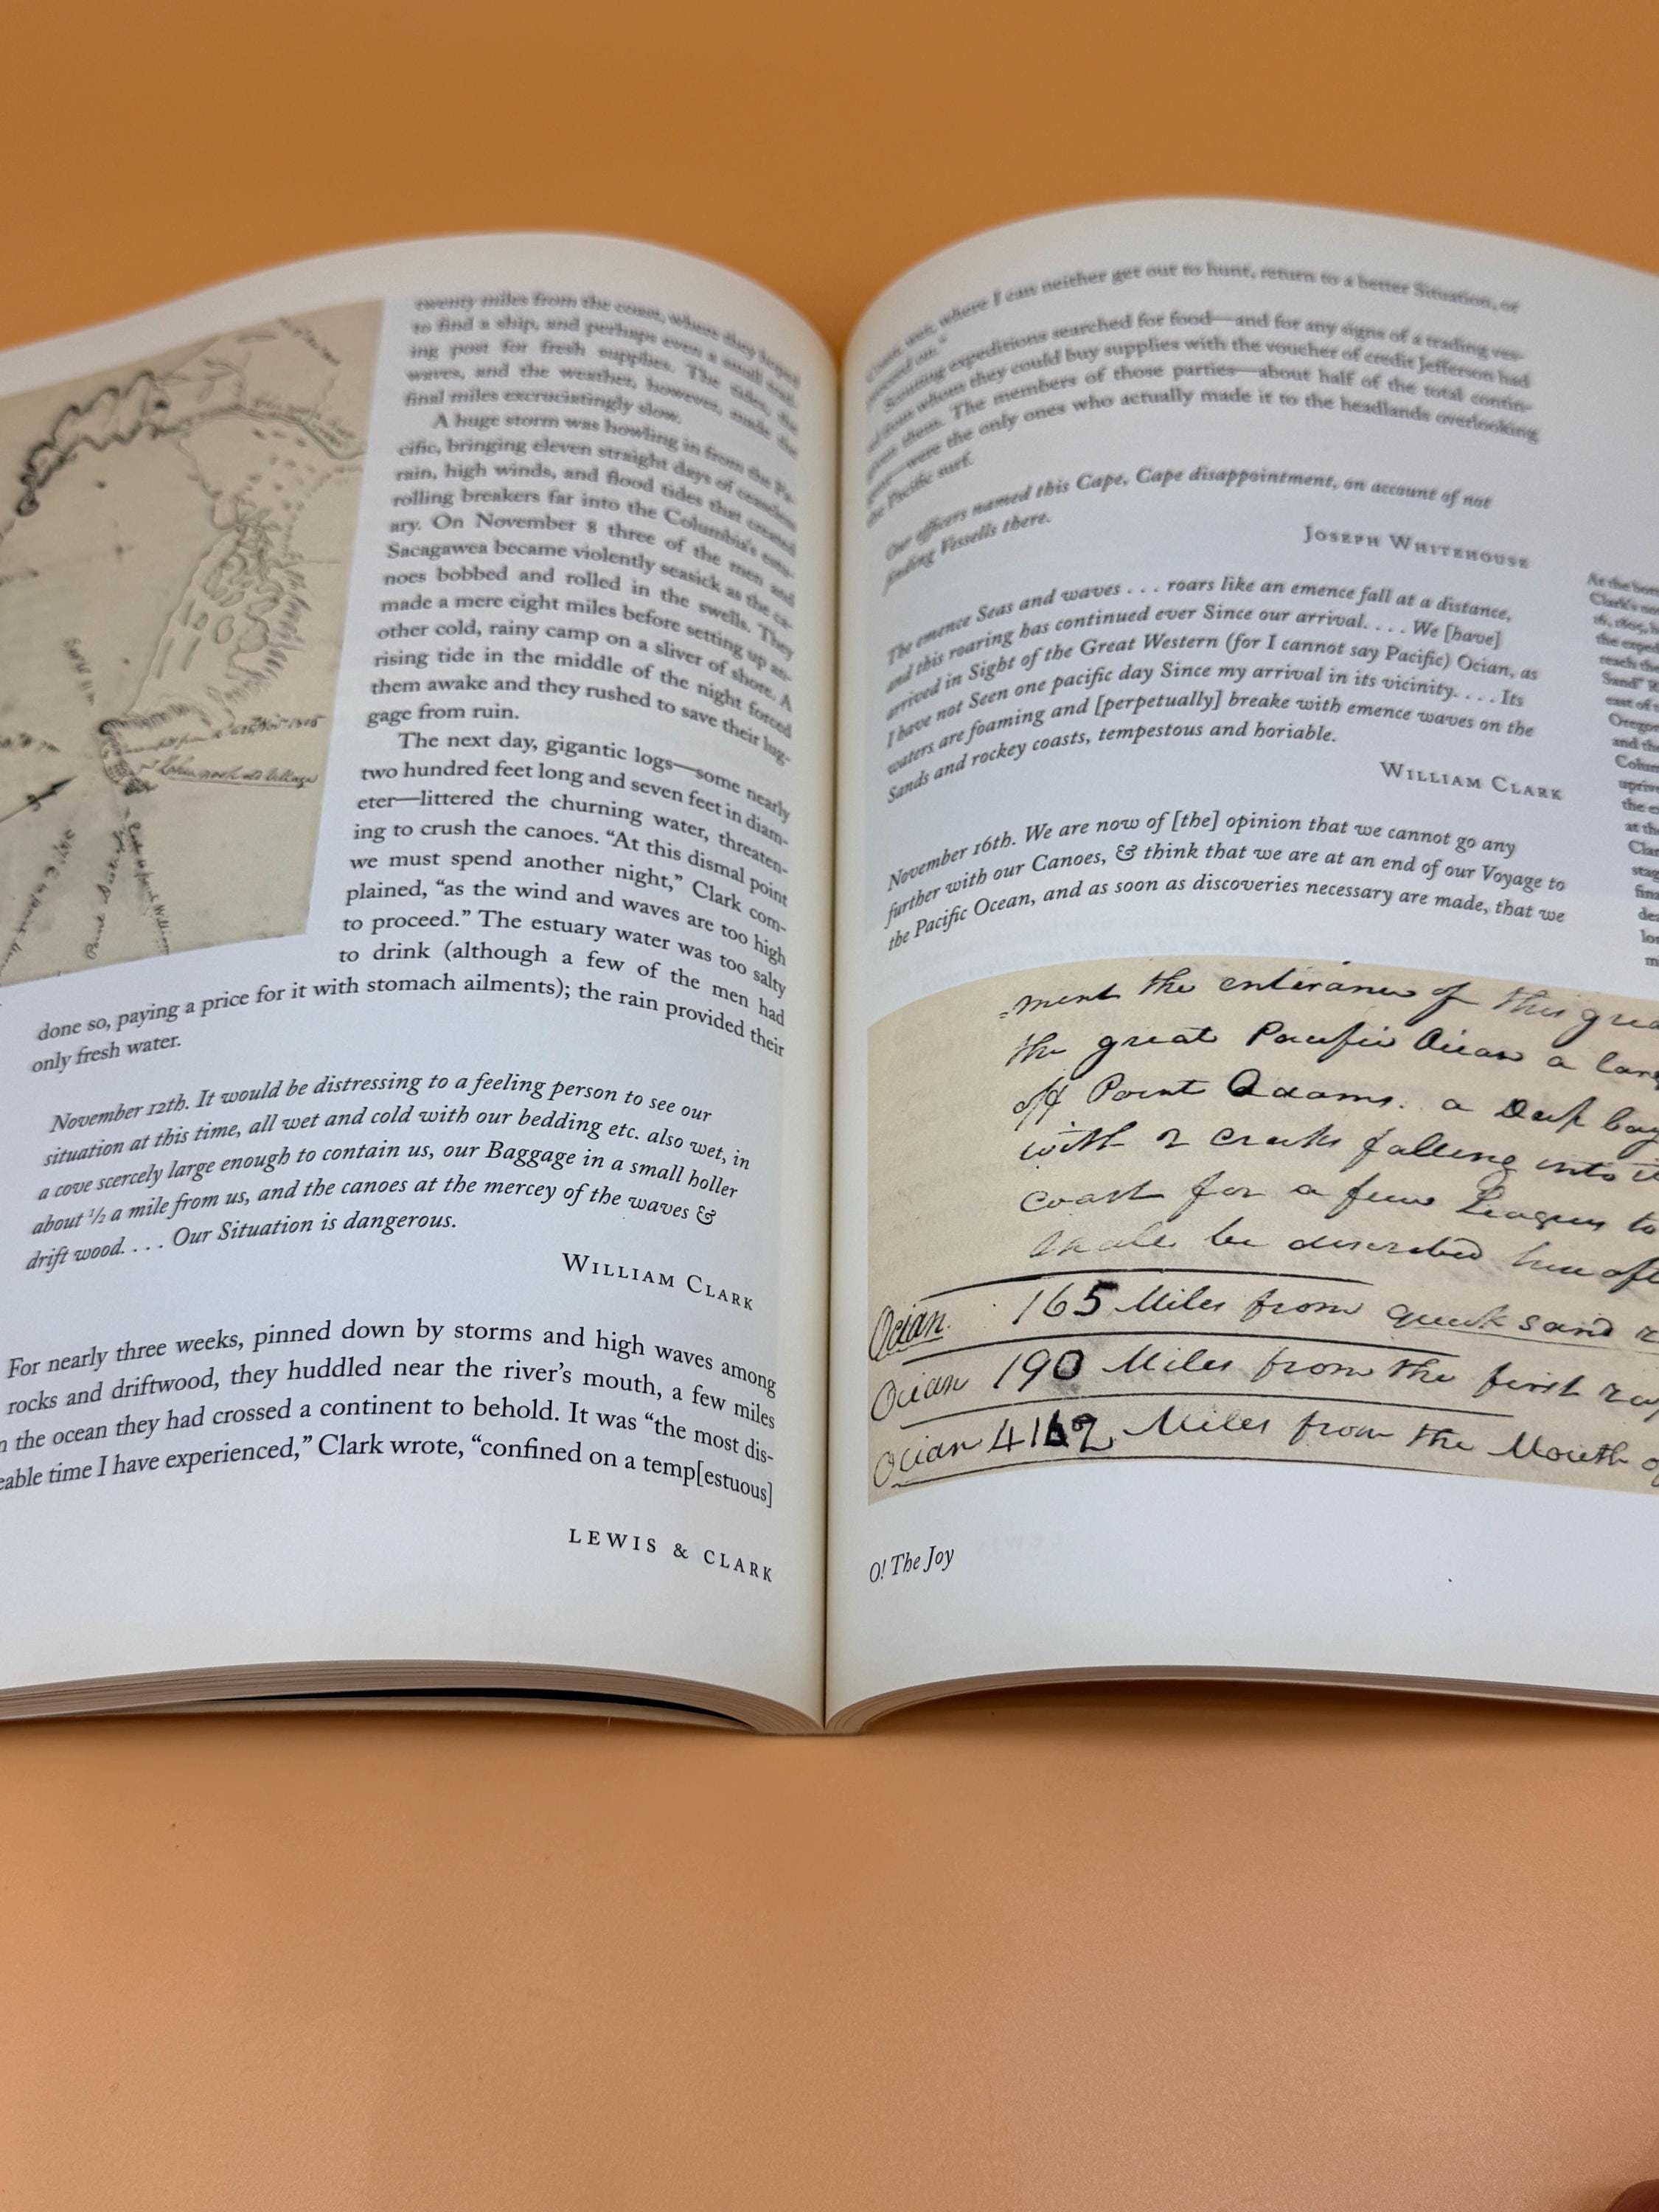 twenty miles from the coast, where they hoped
to find a ship, and perhaps even a small
ing post for fresh supplies. The tides, the
waves, and the weather, however, made the
final miles excruciatingly slow.
A huge storm was howling in from the Pa-
cific, bringing eleven straight days of ceaseless
rain, high winds, and flood tides that created
rolling breakers far into the Columbia's estu-
ary. On November 8 three of the men and
Sacagawea became violently seasick as the ca-
noes bobbed and rolled in the swells. They
made a mere eight miles before setting up an-
other cold, rainy camp on a sliver of shore. A
rising tide in the middle of the night forced
them awake and they rushed to save their lug-
gage from ruin.
The next day, gigantic logs—some nearly
two hundred feet long and seven feet in diam-
eter—littered the churning water, threaten-
ing to crush the canoes. “At this dismal point
we must spend another night,” Clark com-
plained, “as the wind and waves are too high
to proceed.” The estuary water was too salty
to drink (although a few of the men had
done so, paying a price for it with stomach ailments); the rain provided their
only fresh water.
November 12th. It would be distressing to a feeling person to see our
situation at this time, all wet and cold with our bedding etc. also wet, in
a cove scercely large enough to contain us, our Baggage in a small holler
about ½ a mile from us, and the canoes at the mercey of the waves &
drift wood. . . . Our Situation is dangerous.
WILLIAM CLARK
For nearly three weeks, pinned down by storms and high waves among
rocks and driftwood, they huddled near the river's mouth, a few miles
the ocean they had crossed a continent to behold. It was “the most dis-
eable time I have experienced,” Clark wrote, “confined on a temp[estuous]
LEWIS & CLARK
where I can neither get out to hunt, return to a better Situation, or
proceed on.”
Scouting expeditions searched for food—and for any signs of a trading ves-
sel from whom they could buy supplies with the voucher of credit Jefferson had
given them. The members of those parties—about half of the total contin-
gent—were the only ones who actually made it to the headlands overlooking
the Pacific surf.
Our officers named this Cape, Cape disappointment, on account of not
finding Vessells there.
JOSEPH WHITEHOUSE
The emence Seas and waves . . . roars like an emence fall at a distance,
and this roaring has continued ever Since our arrival. . . . We [have]
arrived in Sight of the Great Western (for I cannot say Pacific) Ocian, as
I have not Seen one pacific day Since my arrival in its vicinity. . . . Its
waters are foaming and [perpetually] breake with emence waves on the
Sands and rockey coasts, tempestous and horiable.
WILLIAM CLARK
November 16th. We are now of [the] opinion that we cannot go any
further with our Canoes, & think that we are at an end of our Voyage to
the Pacific Ocean, and as soon as discoveries necessary are made, that we
ment the enterance of this
the great Pacific Ocian a
off Point Adams. a Deep bay
with 2 creeks falling into
coast for a few Leagues to
Shall be discribed
Ocian 165 Miles from quick sand
Ocian 190 Miles from the first
Ocian 4162 Miles from the Mouth
O! The Joy